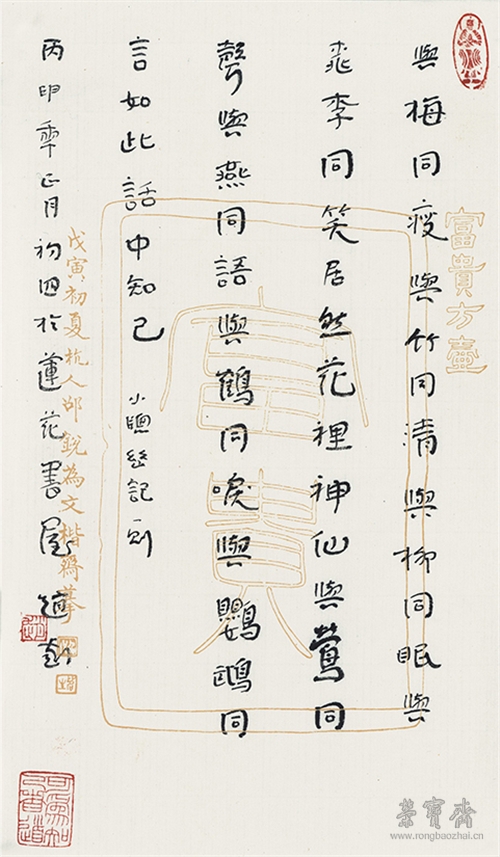 與梅同瘦與竹同清與柳同眠與
桃李同笑居然花裡神仙與鶯同
聲與燕同語與鶴同唳與鸚鵡同
言如此話中知己 小牕幽記一則
丙申秊正月初四於蓮花書屋
富貴方壺
富貴
戊寅初夏杭人邵銳為文楷齋摹
榮寶齋
www.rongbaozhai.cn